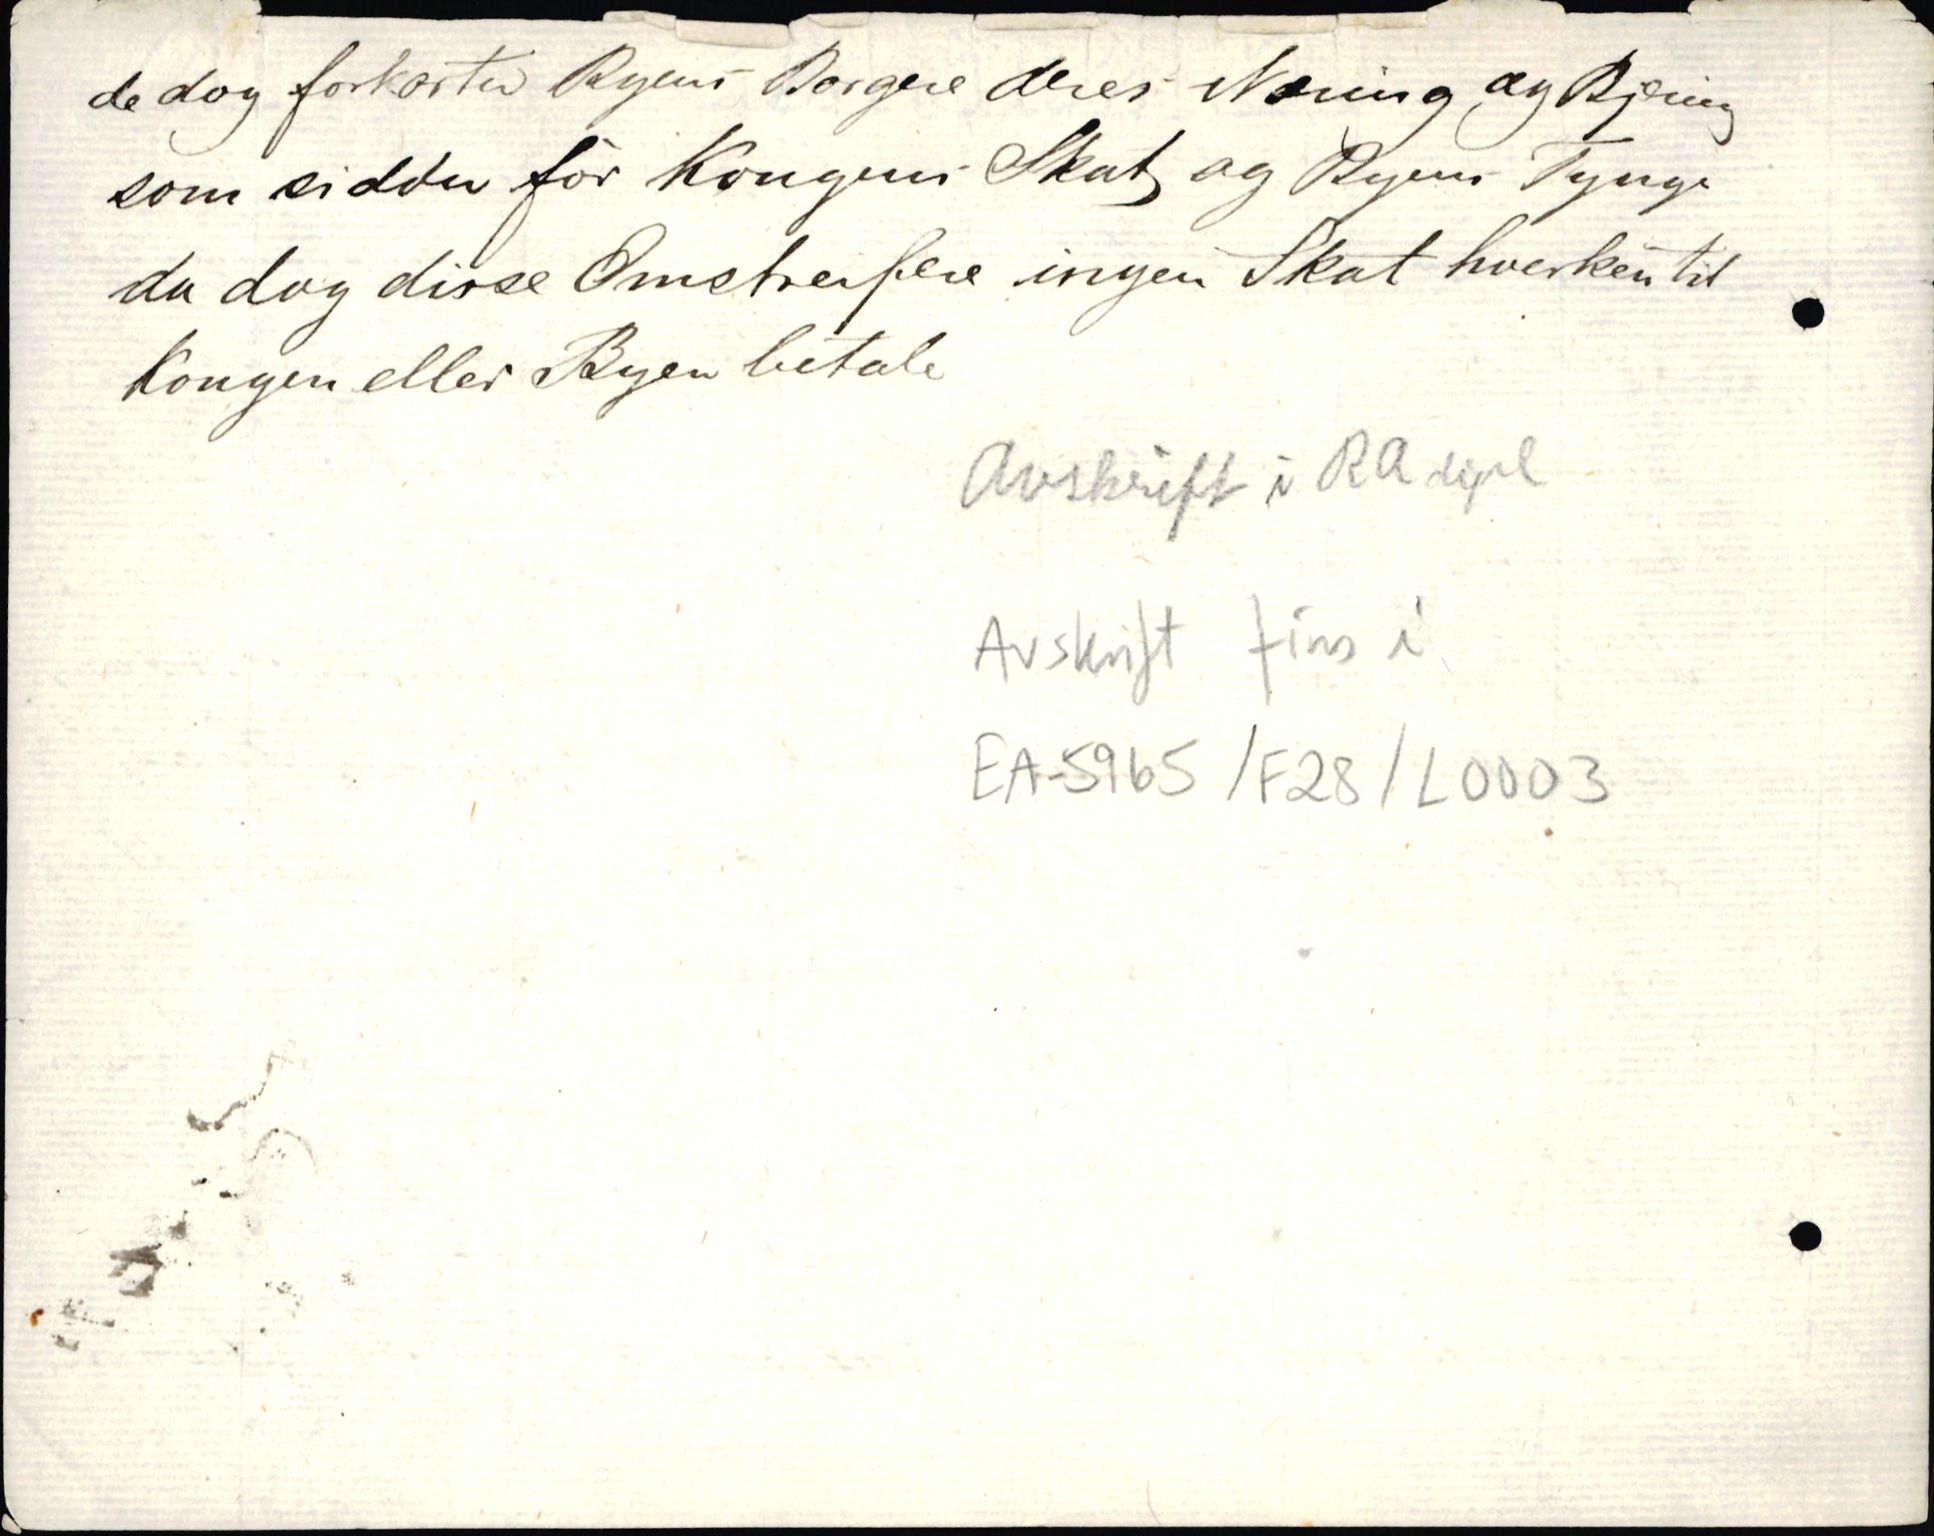 de dog forkorter Byens Borgere deres Næring og Bjering
som sidder för Kongens Skat og Byens Tynge
da dog disse Omstreifere ingen Skat hverken til
Kongen eller Byen betale
Avskrift i RA dipl
Avskrift fins i
EA-5965 /F28/L0003